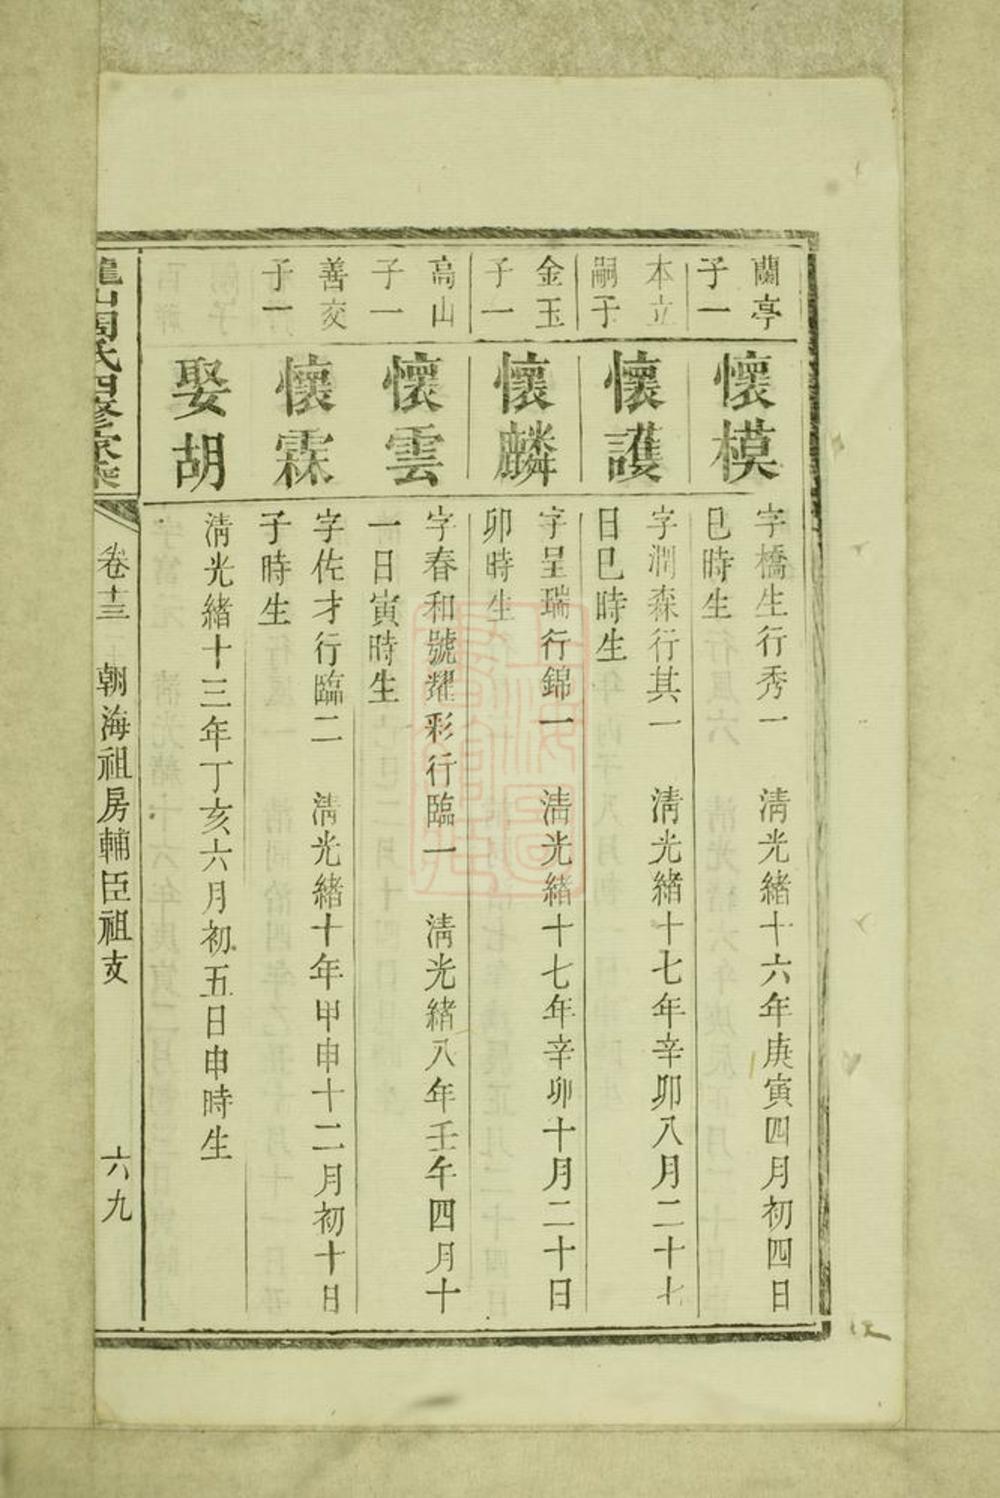 蘭亭
子一
懷模
字橋生行秀一 清光緒十六年庚寅四月初四日
巳時生
本立
嗣子
懷護
字潤森行其一 清光緒十七年辛卯八月二十七
日巳時生
金玉
子一
懷麟
字呈瑞行錦一 清光緒十七年辛卯十月二十日
卯時生
高山
子一
懷雲
字春和號耀彩行臨一 清光緒八年壬午四月十
一日寅時生
善交
子一
懷霖
字佐才行臨二 清光緒十年甲申十二月初十日
子時生
娶胡
清光緒十三年丁亥六月初五日申時生
龍山周氏四修家乘
卷十三 朝海祖房輔臣祖支 六九